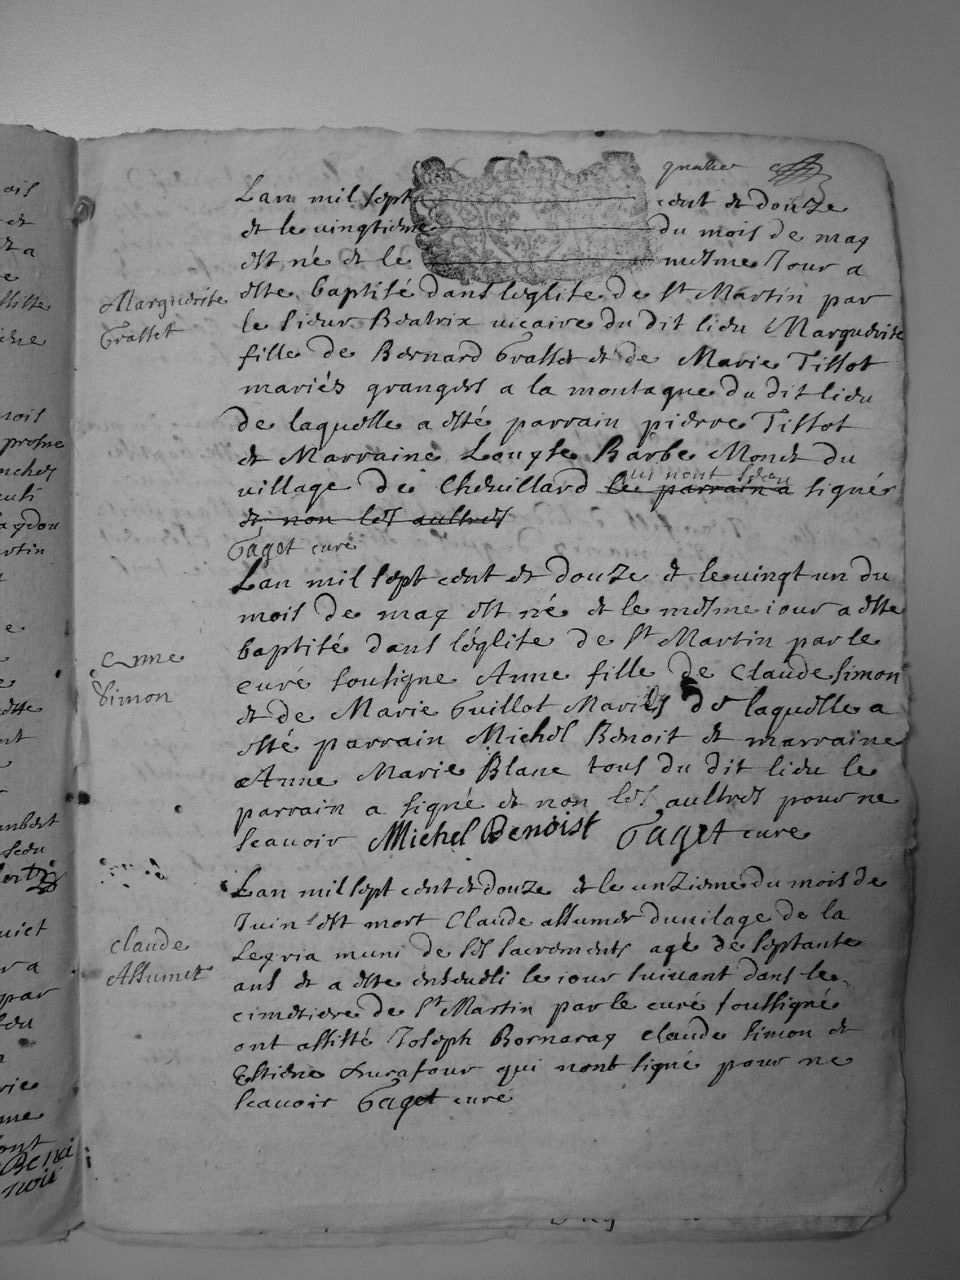 quatre
Lan mil sept cent et douze
et le vingtieme du mois de may
est né et le mesme Jour a
Marguerite
Grasset
este baptisé dans leglise de St Martin par
le sieur Beatrix vicaire du dit lieu Marguerite
fille de Bernard Grasset et de Marie Tissot
mariés grangers a la montagne du dit lieu
de laquelle a esté parrain pierre Tissot
et Marraine Louyse Barbe Monet du
village de Chevillard le parrain a signés
et non les aultres
Gaget curé
Lan mil sept cent et douze et le vingt un du
mois de may est né et le mesme iour a este
baptisé dans leglise de St Martin par le
Anne
Simon
curé sousigne Anne fille de Claude Simon
et de Marie Guillot Mariés de laquelle a
esté parrain Michel Benoit et marraine
Anne Marie Blanc tous du dit lieu le
parrain a signé et non les aultres pour ne
scavoir Michel Benoist Gaget curé
Lan mil sept cent et douze et le unzieme du mois de
Juin est mort Claude assumet du vilage de la
Claude
Assumet
Leyria muni de ses sacrements agé de septante
ans et a este enseveli le iour suivant dans le
cimetiere de St Martin par le curé soussigné
ont assisté Joseph Bornaray Claude Simon et
Estiene Durafour qui nont signé pour ne
scavoir Gaget curé